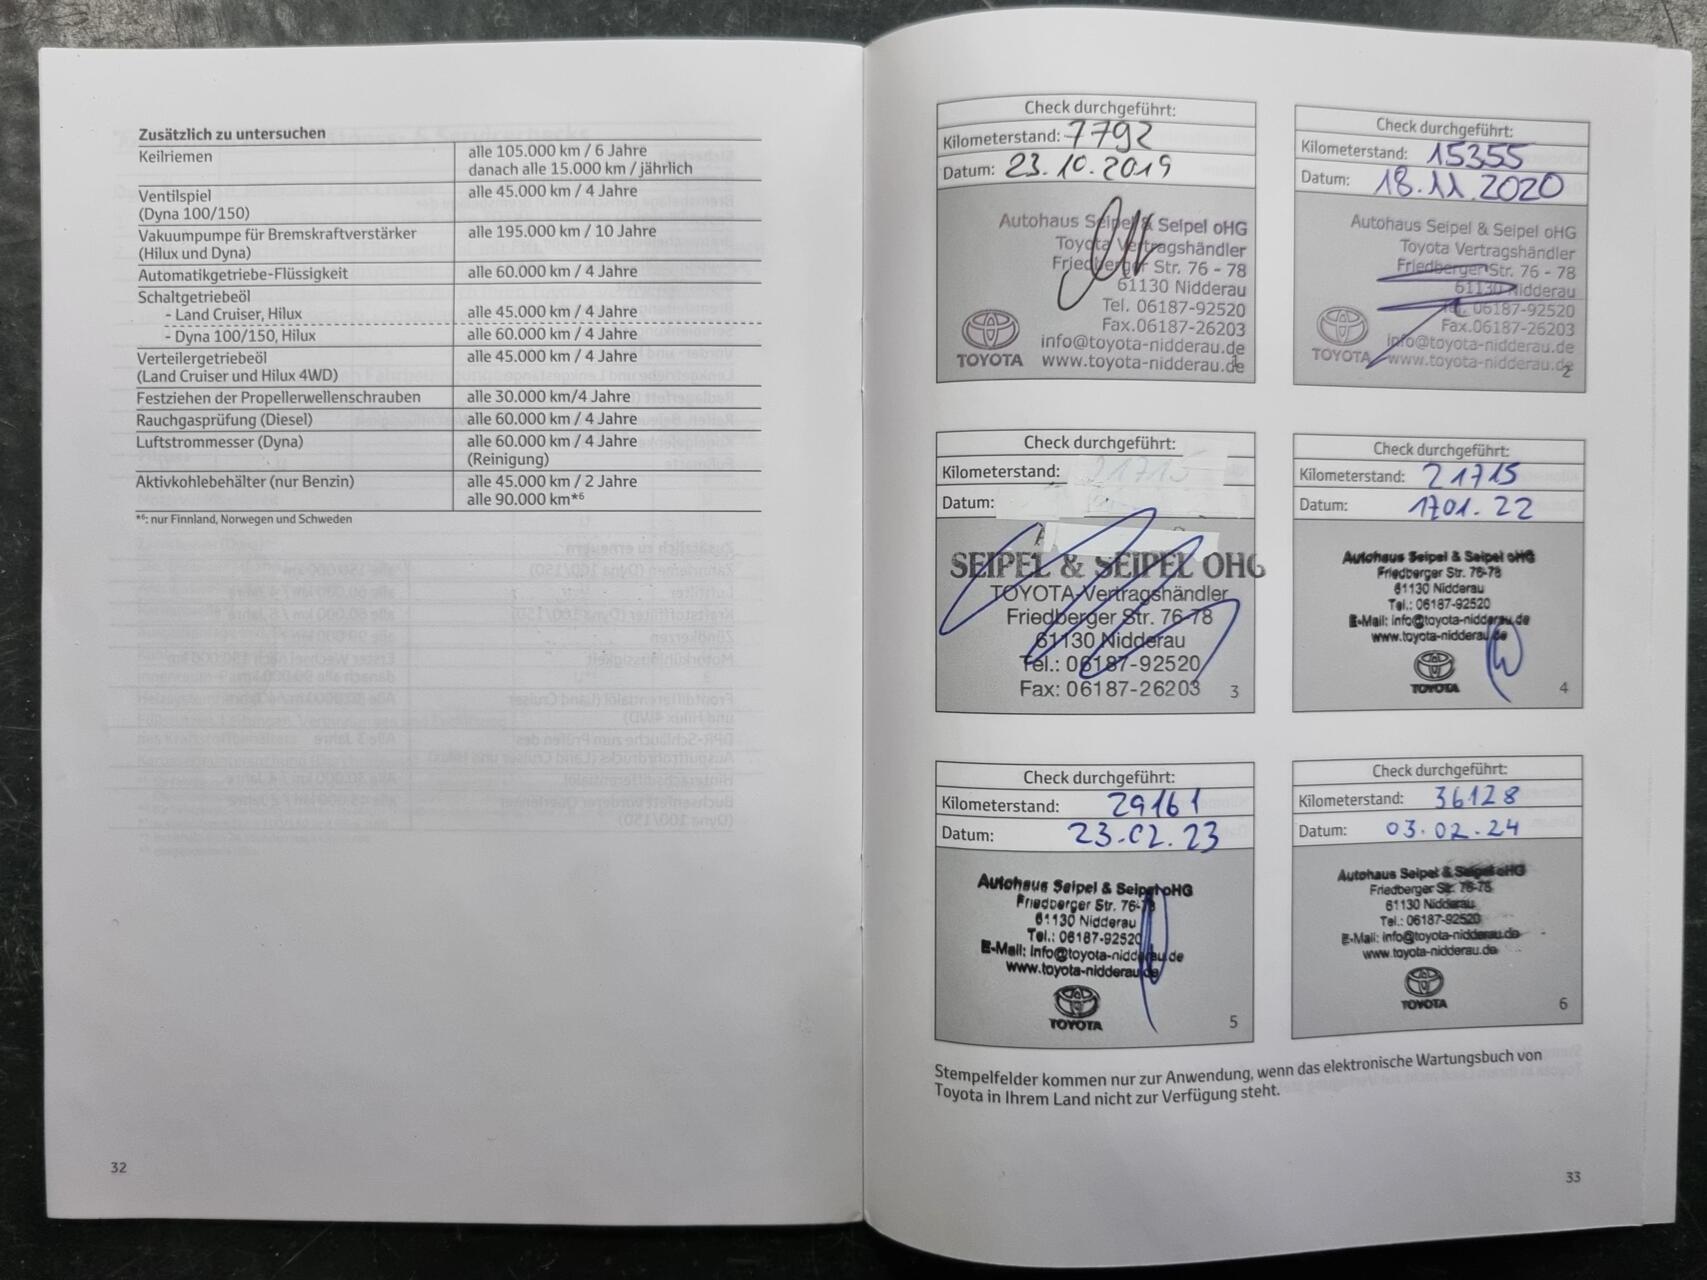 Zusätzlich zu untersuchen
Keilriemen alle 105.000 km / 6 Jahre
danach alle 15.000 km / jährlich
Ventilspiel alle 45.000 km / 4 Jahre
(Dyna 100/150)
Vakuumpumpe für Bremskraftverstärker alle 195.000 km / 10 Jahre
(Hilux und Dyna)
Automatikgetriebe-Flüssigkeit alle 60.000 km / 4 Jahre
Schaltgetriebeöl
- Land Cruiser, Hilux alle 45.000 km / 4 Jahre
- Dyna 100/150, Hilux alle 60.000 km / 4 Jahre
Verteilergetriebeöl alle 45.000 km / 4 Jahre
(Land Cruiser und Hilux 4WD)
Festziehen der Propellerwellenschrauben alle 30.000 km/4 Jahre
Rauchgasprüfung (Diesel) alle 60.000 km / 4 Jahre
Luftstrommesser (Dyna) alle 60.000 km / 4 Jahre
(Reinigung)
Aktivkohlebehälter (nur Benzin) alle 45.000 km / 2 Jahre
alle 90.000 km*6
*6: nur Finnland, Norwegen und Schweden
32
Check durchgeführt:
Kilometerstand: 7792
Datum: 23.10.2019
Autohaus Seipel & Seipel oHG
Toyota Vertragshändler
Friedberger Str. 76 - 78
61130 Nidderau
Tel. 06187-92520
Fax.06187-26203
info@toyota-nidderau.de
TOYOTA www.toyota-nidderau.de
1
Check durchgeführt:
Kilometerstand: 15355
Datum: 18.11.2020
Autohaus Seipel & Seipel oHG
Toyota Vertragshändler
Friedberger Str. 76 - 78
61130 Nidderau
Tel. 06187-92520
Fax.06187-26203
info@toyota-nidderau.de
TOYOTA www.toyota-nidderau.de
2
Check durchgeführt:
Kilometerstand: 21715
Datum:
SEIPEL & SEIPEL OHG
TOYOTA-Vertragshändler
Friedberger Str. 76-78
61130 Nidderau
Tel.: 06187-92520
Fax: 06187-26203 3
Check durchgeführt:
Kilometerstand: 21715
Datum: 1701.22
Autohaus Seipel & Seipel oHG
Friedberger Str. 76-78
61130 Nidderau
Tel.: 06187-92520
E-Mail: info@toyota-nidderau.de
www.toyota-nidderau.de
TOYOTA 4
Check durchgeführt:
Kilometerstand: 29161
Datum: 23.02.23
Autohaus Seipel & Seipel oHG
Friedberger Str. 76-78
61130 Nidderau
Tel.: 06187-92520
E-Mail: info@toyota-nidderau.de
www.toyota-nidderau.de
TOYOTA 5
Check durchgeführt:
Kilometerstand: 36128
Datum: 03.02.24
Autohaus Seipel & Seipel oHG
Friedberger Str. 76-78
61130 Nidderau
Tel.: 06187-92520
E-Mail: info@toyota-nidderau.de
www.toyota-nidderau.de
TOYOTA 6
Stempelfelder kommen nur zur Anwendung, wenn das elektronische Wartungsbuch von
Toyota in Ihrem Land nicht zur Verfügung steht.
33